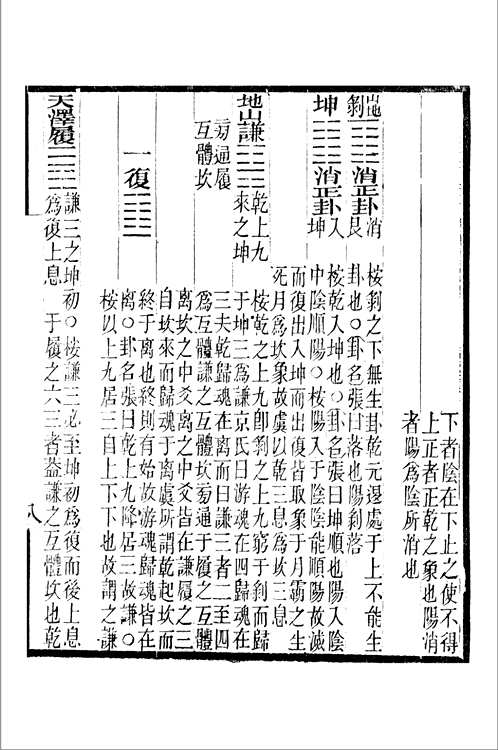 下者陰在下止之使不得
上正者正乾之象也陽消
者陽為陰所消也
剝 消正卦 消艮
桉剝之下無生卦乾元退處于上不能生
卦也○卦名張曰落也陽剝落
坤 消正卦 入坤
桉乾入坤也○卦名張曰坤順也陽入陰
中陰順陽○桉陽入于陰陰能順陽故滅
而復出入坤而出復皆取象于月霸之生
死月為坎象故虞以乾三息為坎三息
地山謙 乾上九來之坤
桉乾之上九卽剝之上九窮于剝而歸
于坤三為謙京氏曰游魂在四歸魂在
三夫乾歸魂在離而曰謙三者二至四
旁通履
互體坎
為互體謙之互體坎旁通于履之互體
離坎之中爻離之中爻皆在謙履之三
自坎來而歸魂于離虞所謂乾起坎而
終于離也終則有始故游魂歸魂皆在
一復
離○卦名張曰乾上九降居三故謙○
桉以上九居三自上下下也故謂之謙
天澤履 謙三之坤初○桉謙三必至坤初為復而後上息
為復上息 于履之六三者葢謙之互體坎也乾
八